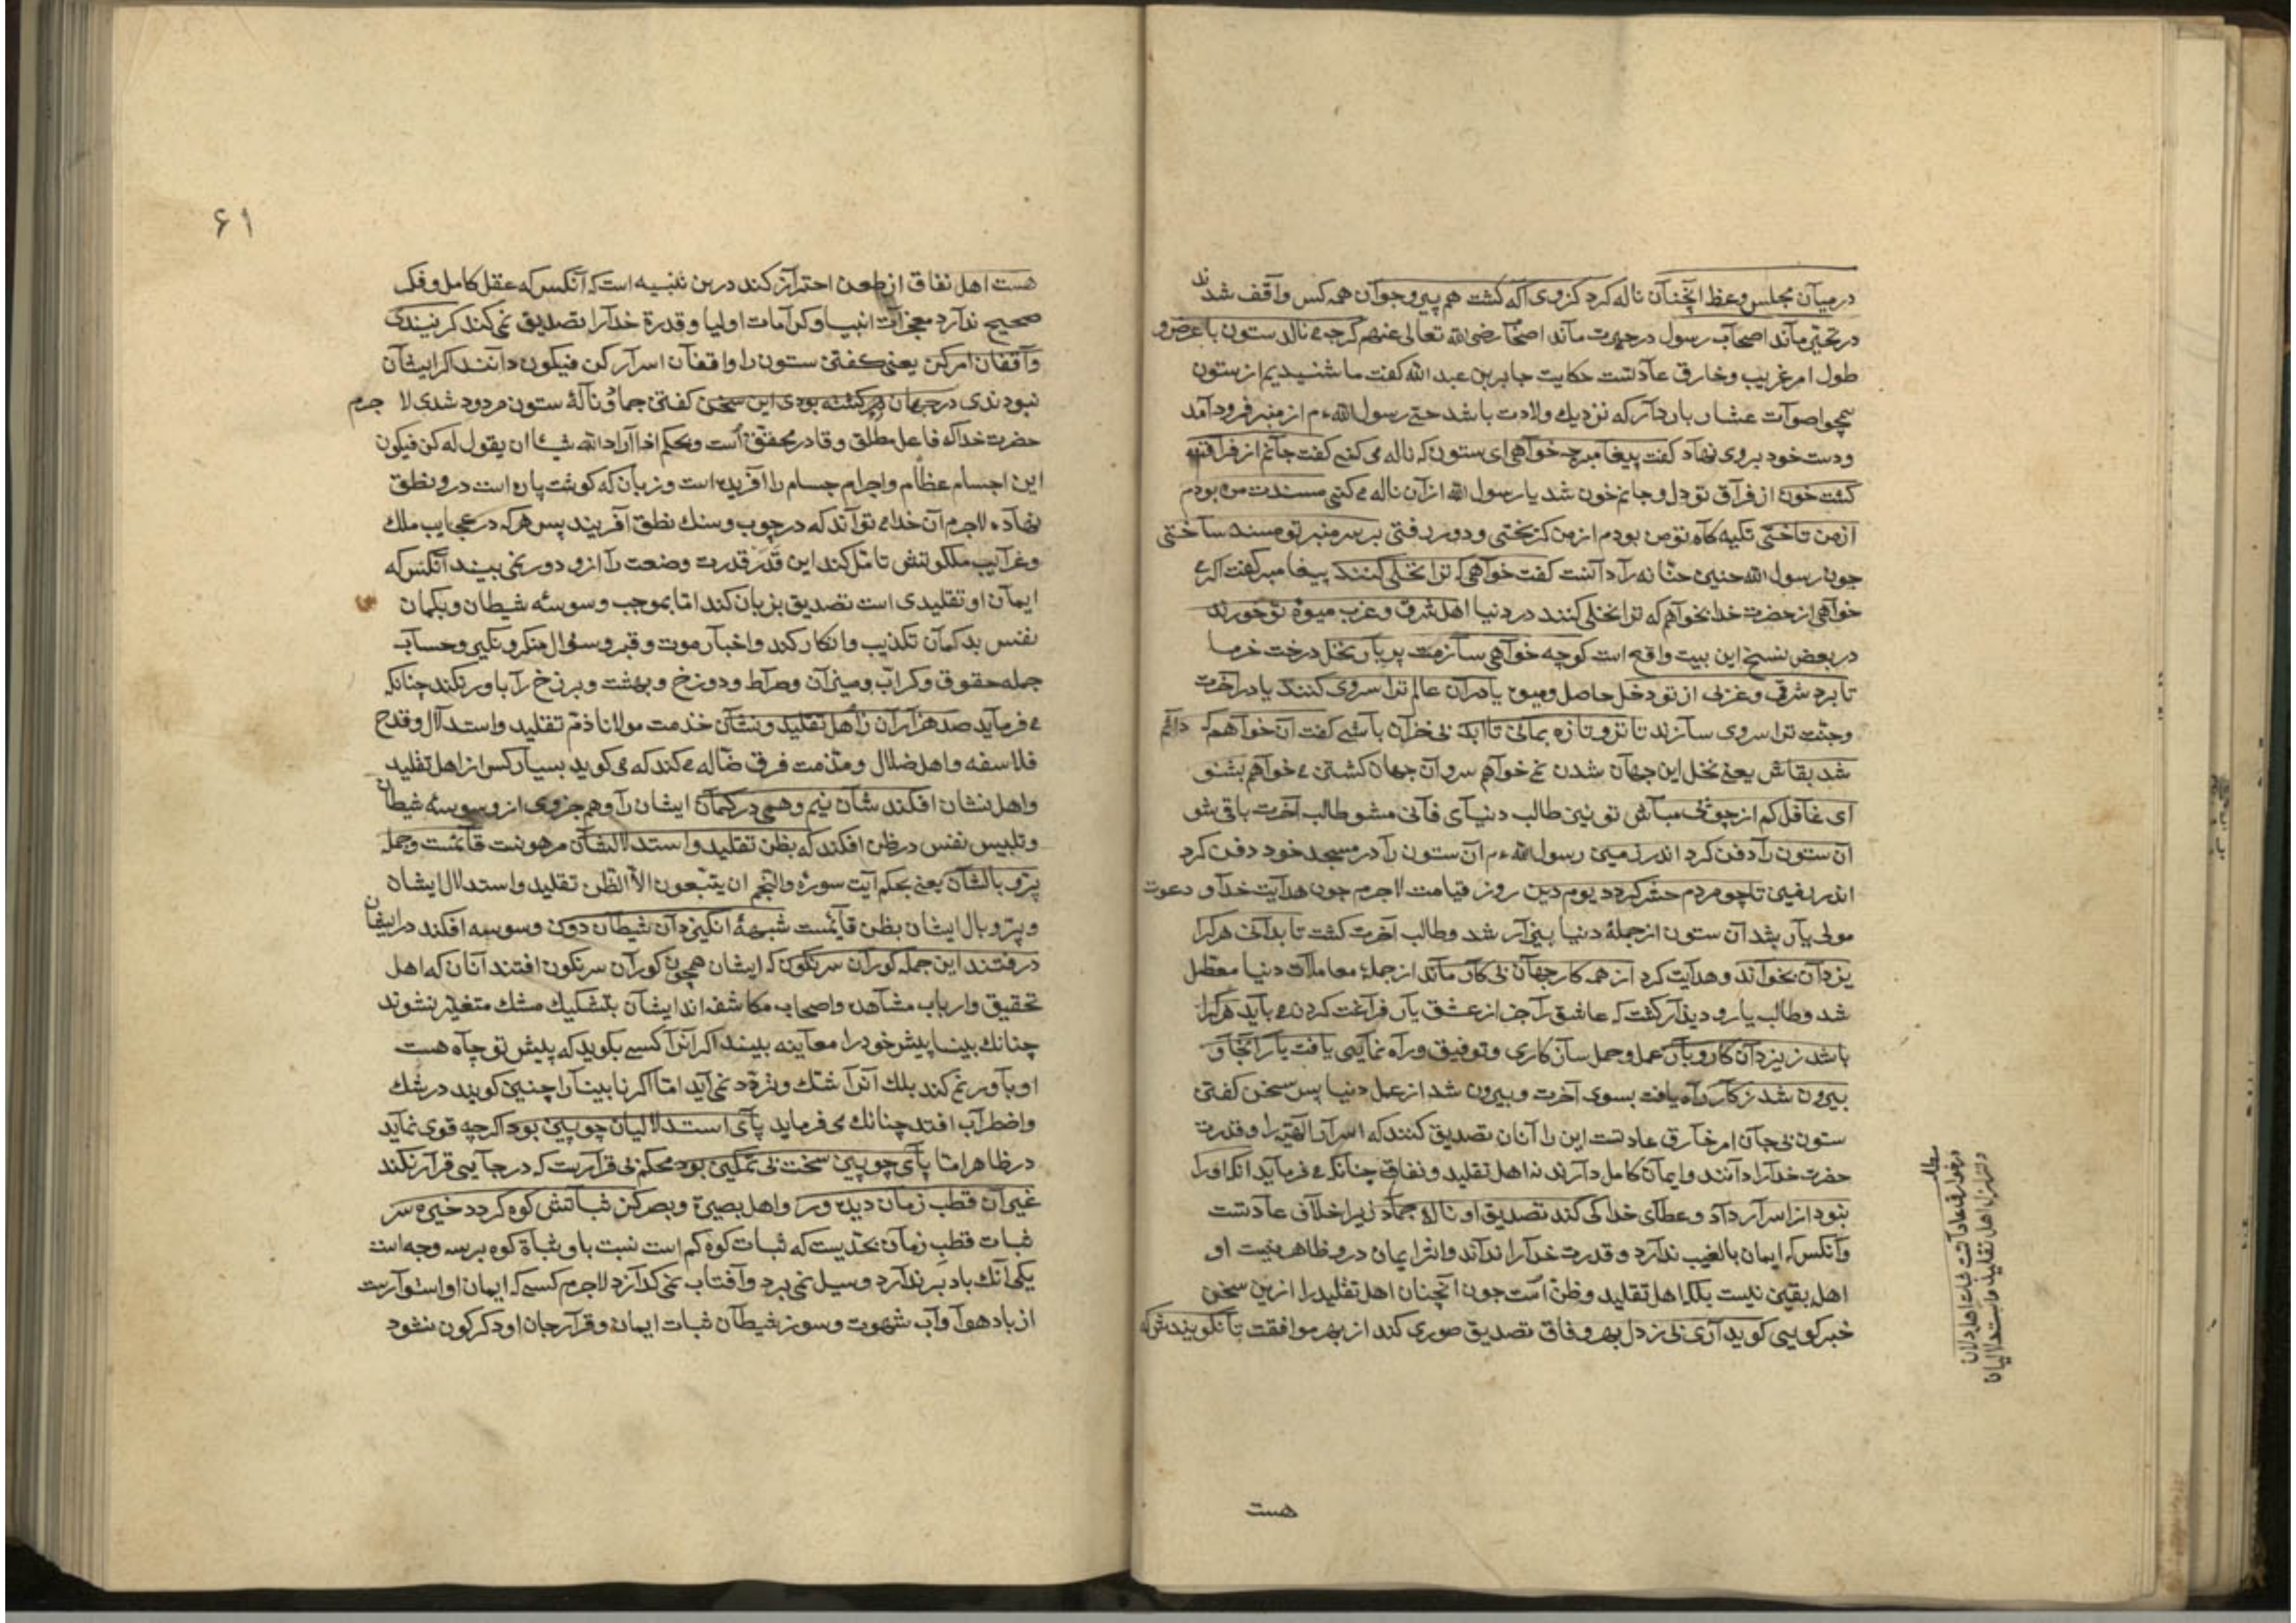 درمیان مجلس وعظ آنچنان ناله کرد کزوی آکه کشت هم پیر وجوان همه کس واقف شدند
در تحیر ماند اصحاب رسول در حیرت ماند اصحاب رضی الله تعالی عنهم کرچه می نالد ستون با عرض و
طول امر غریب وخارق عادتست حکایت جابر بن عبد الله کفت ما شنیدیم از ستون
همچو اصوات عشار باردار که نزدیك ولادت باشد حتی رسول الله عم از منبر فرود آمد
ودست خود بروی نهاد کفت پیغامبر چه خواهی ای ستون که ناله می کنی کفت جانم از فراقت
کشت خون از فراق تو دل وجانم خون شد یا رسول الله از آن ناله می کنی مسندت من بودم
از من تاختی تکیه کاه تو من بودم از من کریختی و دور رفتی بر سر منبر تو مسند ساختی
چون رسول الله حنین حنانه را دانست کفت خواهی که ترا نخلی کنند پیغامبر کفت اکر
خواهی از حضرت خدا بخواهم که ترا نخلی کنند در دنیا اهل شرق و غرب میوۀ تو خورند
در بعض نسخ این بیت واقع است کو چه خواهی سازمت پر بار نخل درخت خرما
تا برد شرقی و غربی از تو دخل حاصل ومیوه یا در آن عالم ترا سروی کنند یا در آخرت
وجنت ترا سروی سازند تا تر و تازه بمانی تا ابد بی خزان باشی کفت آن خواهم که دائم
شد بقاش یعنی نخل این جهان شدن نمی خواهم سرو آن جهان کشتن می خواهم بشنو
ای غافل کم از چوبی مباش تو نیز طالب دنیای فانی مشو طالب آخرت باقی شو
آن ستون را دفن کرد اندر زمین رسول الله عم آن ستون را در مسجد خود دفن کرد
اندر زمین تا چو مردم حشر کردد یوم دین روز قیامت لاجرم چون هدایت خدا و دعوت
مولی یار شد آن ستون از جملۀ دنیا بیزار شد وطالب آخرت کشت تا بدانی هر کرا
یزدان بخواند وهدایت کرد از همه کار جهان بی کار ماند از جملۀ معاملات دنیا معطل
شد وطالب یار و دیندار کشت که عاشق را جز از عشق یار فراغت کردن می باید هر کرا
باشد ز یزدان کار وبار عمل وحمل سازکاری وتوفیق وراه نمایی یافت بار آنجا و
بیرون شد ز کار راه یافت بسوی آخرت وبیرون شد از عمل دنیا پس سخن کفتن
ستون بی جان امر خارق عادتست این را آنان تصدیق کنند که اسرار الهیه را وقدرت
حضرت خدا را دانند وایمان کامل دارند نه اهل تقلید ونفاق چنانکه می فرماید آنکه او را
نبود از اسرار داد وعطای خدا کی کند تصدیق او نالۀ جماد زیرا خلاف عادتست
وآنکس که ایمان بالغیب ندارد وقدرت خدا را نداند واثر ایمان درو ظاهر نیست او
اهل یقین نیست بلکه اهل تقلید وظن است چون آنچنان اهل تقلید را ازین سخن
خبر کویی کوید آری نی ز دل بهر وفاق تصدیق صوری کند از بهر موافقت تا نکویندش که
هست
مطلب
در خوارق عادات
هست اهل نفاق از طعن احتراز کند درین تنبیه است که آنکس که عقل کامل وفکر
صحیح ندارد معجزات انبیا وکرامات اولیا وقدرة خدا را تصدیق نمی کند کر نیندی
واقفان امر کن یعنی کفتن ستون را واقفان اسرار کن فیکون دانند اکر ایشان
نبودندی در جهان رد کشته بودی این سخن کفتن جماد ونالۀ ستون مردود شدی لا جرم
حضرت خدا که فاعل مطلق وقادر محقق است وبحکم اذا اراد الله شیئا ان یقول له کن فیکون
این اجسام عظام واجرام جسام را آفریده است وزبان که کوشت پاره است درو نطق
نهاده لاجرم آن خدای تواند که در چوب وسنك نطق آفریند پس هر که در عجایب ملك
وغرایب ملکوتش تامل کند این قدر قدرت وصنعت را ازو دور نمی بیند آنکس که
ایمان او تقلیدی است تصدیق بزبان کند اما بموجب وسوسۀ شیطان وبکمان
نفس بدکمان تکذیب وانکار کند واخبار موت وقبر وسؤال منکر ونکیر وحساب
جمله حقوق وکراب ومیزان وصراط ودوزخ وبهشت وبرزخ را باور نکند چنانکه
می فرماید صد هزاران ز اهل تقلید ونشان خدمت مولانا ذم تقلید واستدلال وقدح
فلاسفه واهل ضلال ومذمت فرق ضاله می کند که می کوید بسیار کس از اهل تقلید
واهل نشان افکند شان نیم وهمی در کمان ایشان را وهم جزوی از وسوسۀ شیطان
وتلبیس نفس در ظن افکند که بظن تقلید واستدلالشان مرهونست قائمست وجمله
پر وبالشان یعنی بحکم آیت سورۀ والنجم ان یتبعون الا الظن تقلید واستدلال ایشان
وپر وبال ایشان بظن قائمست شبهۀ انکیزد آن شیطان دون وسوسه افکند در ایشان
درفتند این جمله کوران سرنکون که ایشان همچون کوران سرنکون افتند آنان که اهل
تحقیق وارباب مشاهده واصحاب مکاشفه اند ایشان بتشکیك مشك متغیر نشوند
چنانك بینا پیش خود را معاینه بیند اکر آنرا کسی بکوید که پیش تو چاه هست
او باور نمی کند بلك آنرا شك وتردد نمی آید اما اکر نابینا را چنین کویند در شك
واضطراب افتد چنانك می فرماید پای استدلالیان چوبین بود اکرچه قوی نماید
در ظاهر اما پای چوبین سخت بی تمکین بود محکم بی قرارست که در جایی قرار نکند
غیر آن قطب زمان دیده ور واهل بصیرة وبصر کز ثباتش کوه کردد خیره سر
ثبات قطب زمان بحدیست که ثبات کوه کم است نسبت باو وثباة کوه بر سه وجه است
یکی آنك باد بر ندارد وسیل نمی برد وآفتاب نمی کدازد لاجرم کسی که ایمان او استوارست
از باد هوا وآب شهوت وسوز شیطان ثبات ایمان وقرار جان او دکرکون نشود
۶۱